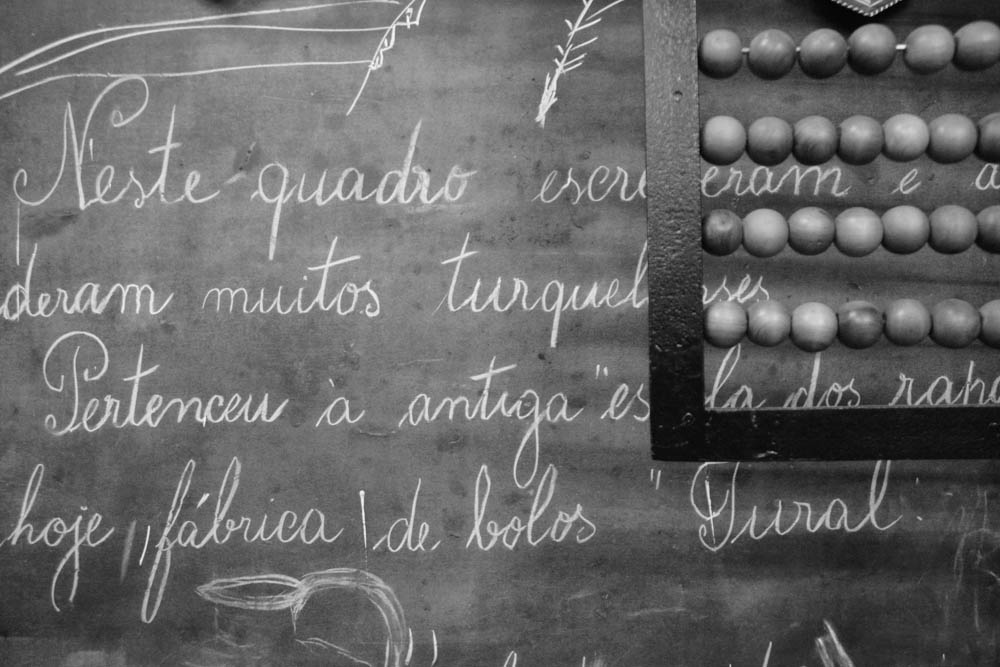 N'este quadro escre eram e a
deram muitos turquel nses
Pertenceu à antiga "es la dos rapa
hoje, fábrica de bolos "Tural"